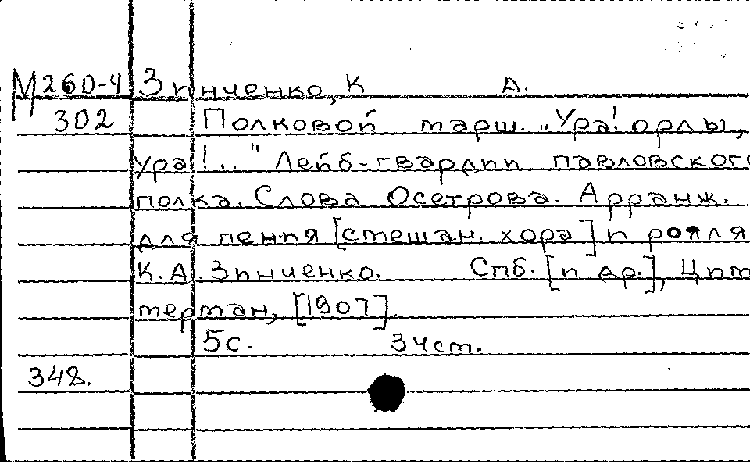 М 260-4 Зинченко, К А.
302 Полковой марш. „Ура! орлы,
ура!.." Лейб-гвардии павловского
полка. Слова Осетрова. Арранж.
для пения [смешан. хора] и рояля
К.А. Зинченко. Спб. [и др.], Цим
мерман, [1907].
5с. 3чст.
348.